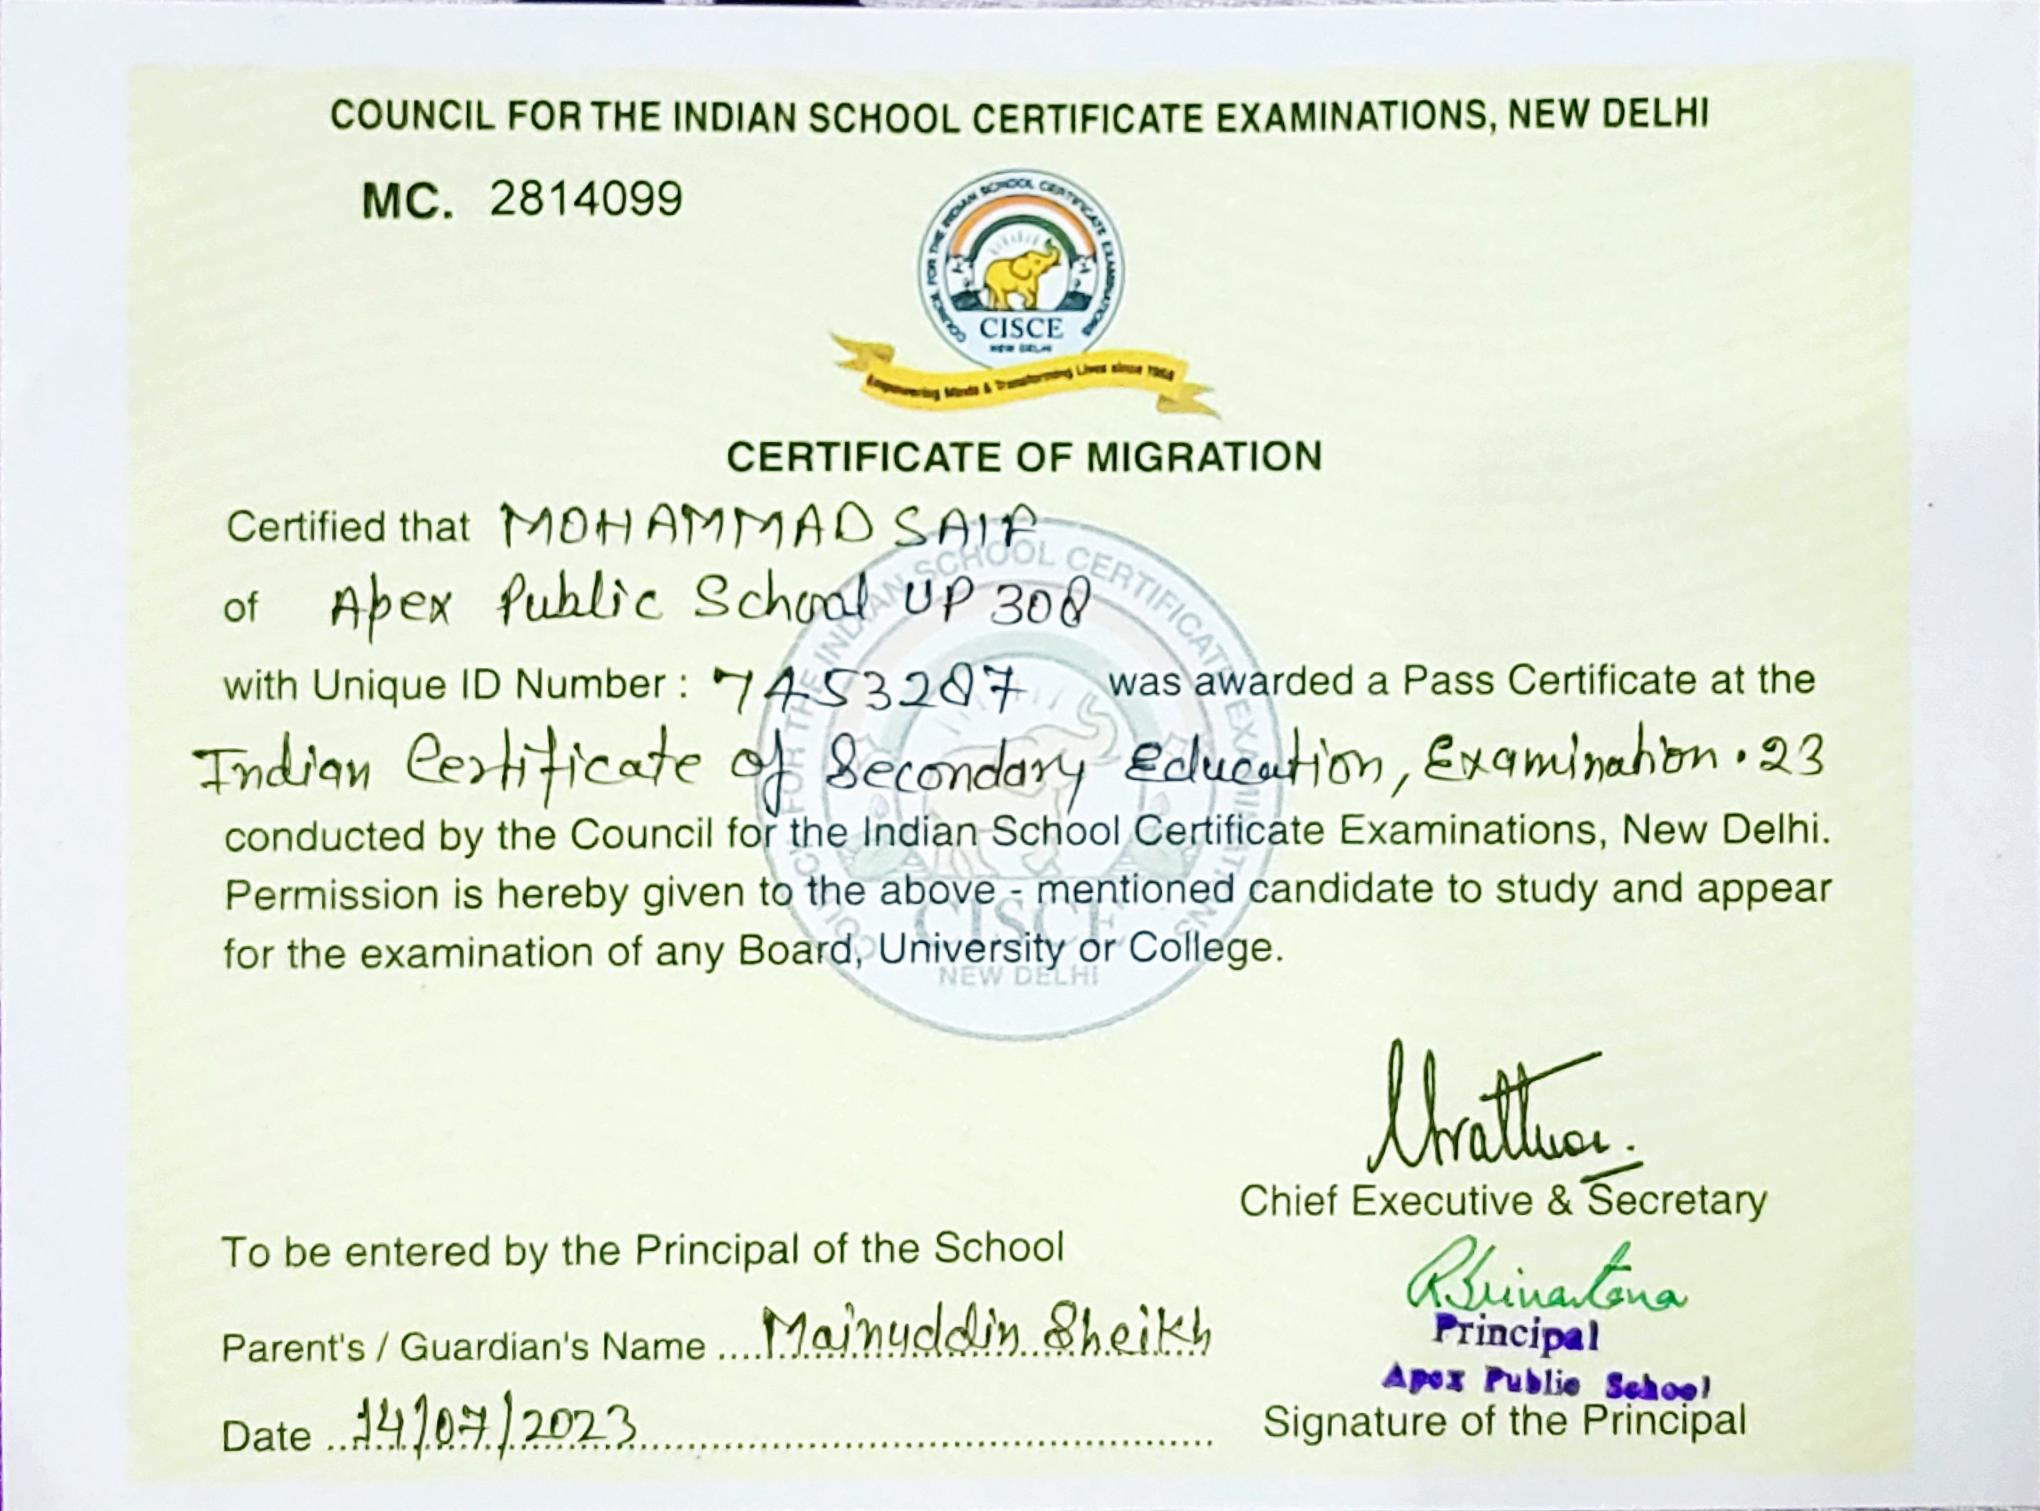 COUNCIL FOR THE INDIAN SCHOOL CERTIFICATE EXAMINATIONS, NEW DELHI
MC. 2814099
COUNCIL FOR THE INDIAN SCHOOL CERTIFICATE EXAMINATIONS
CISCE
NEW DELHI
Empowering Minds & Transforming Lives since 1958
CERTIFICATE OF MIGRATION
Certified that MOHAMMAD SAIF
of Apex Public School UP 308
with Unique ID Number : 7453287 was awarded a Pass Certificate at the
Indian Certificate of Secondary Education, Examination · 23
conducted by the Council for the Indian School Certificate Examinations, New Delhi.
Permission is hereby given to the above - mentioned candidate to study and appear
for the examination of any Board, University or College.
COUNCIL FOR THE INDIAN SCHOOL CERTIFICATE EXAMINATIONS
CISCE
NEW DELHI
Chief Executive & Secretary
To be entered by the Principal of the School
Principal
Parent's / Guardian's Name ....Mainuddin Sheikh
Apex Public School
Date ...14/07/2023
Signature of the Principal